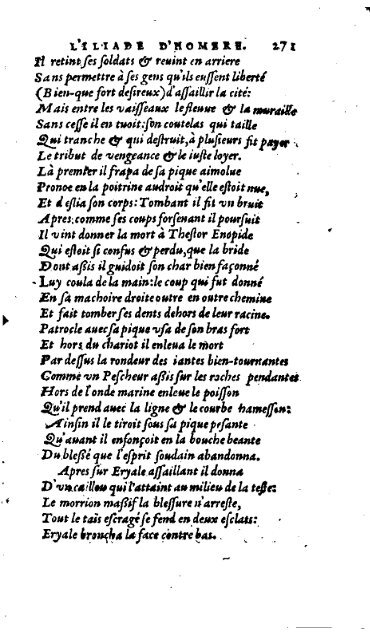 L'ILIADE D'HOMERE. 271
Il retint ſes ſoldats & reuint en arriere
Sans permettre à ſes gens qu'ils euſſent liberté
(Bien-que fort deſireux) d'aſſaillir la cité:
Mais entre les vaiſſeaux le fleuue & la muraille
Sans ceſſe il en tuoit: ſon coutelas qui taille
Qui tranche & qui deſtruit, à pluſieurs fit payer
Le tribut de vengeance & le iuſte loyer.
Là premier il frapa de ſa pique aimolue
Pronoe en la poitrine audroit qu'elle eſtoit nue,
Et deſlia ſon corps: Tombant il fit vn bruit
Apres: comme ſes coups forſenant il pourſuit
Il vint donner la mort à Theſtor Enopide
Qui eſtoit ſi confus & perdu, que la bride
Dont aßis il guidoit ſon char bien façonné
Luy coula de la main: le coup qui fut donné
En ſa machoire droite outre en outre chemine
Et fait tomber ſes dents dehors de leur racine.
Patrocle auec ſa pique vſa de ſon bras fort
Et hors du chariot il enleua le mort
Par deſſus la rondeur des iantes bien-tournantes
Comme vn Peſcheur aßis ſur les roches pendantes
Hors de l'onde marine enleue le poiſſon
Qu'il prend auec la ligne & le courbe hameſſon:
Ainſin il le tiroit ſous ſa pique peſante
Qu'auant il enfonçoit en la bouche beante
Du bleßé que l'eſprit ſoudain abandonna.
Apres ſur Eryale aſſaillant il donna
D'vn caillou qui l'attaint au milieu de la teſte:
Le morrion maßif la bleſſure n'arreſte,
Tout le tais eſcragé ſe fend en deux eſclats:
Eryale broncha la face contre bas.